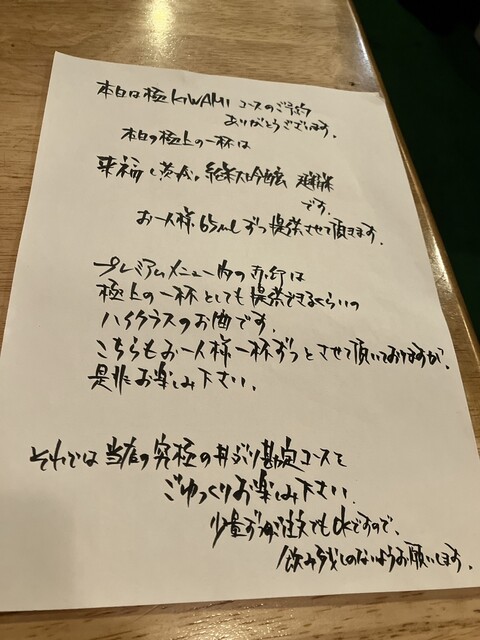 本日は極KIWAMIコースのご予約
ありがとうございます。
本日の極上の一杯は
来福 純米大吟醸
です。
お一人様65mlずつ提供させて頂きます。
プレミアムメニュー内の赤行は
極上の一杯としても提供できるくらいの
ハイクラスのお酒です。
こちらもお一人様一杯ずつとさせて頂いておりますが、
是非お楽しみ下さい。
それでは当店の究極の丼ぶり勘定コースを
ごゆっくりお楽しみ下さい。
少量ずつ注文でもOKですので、
飲み残しのないようお願いします。